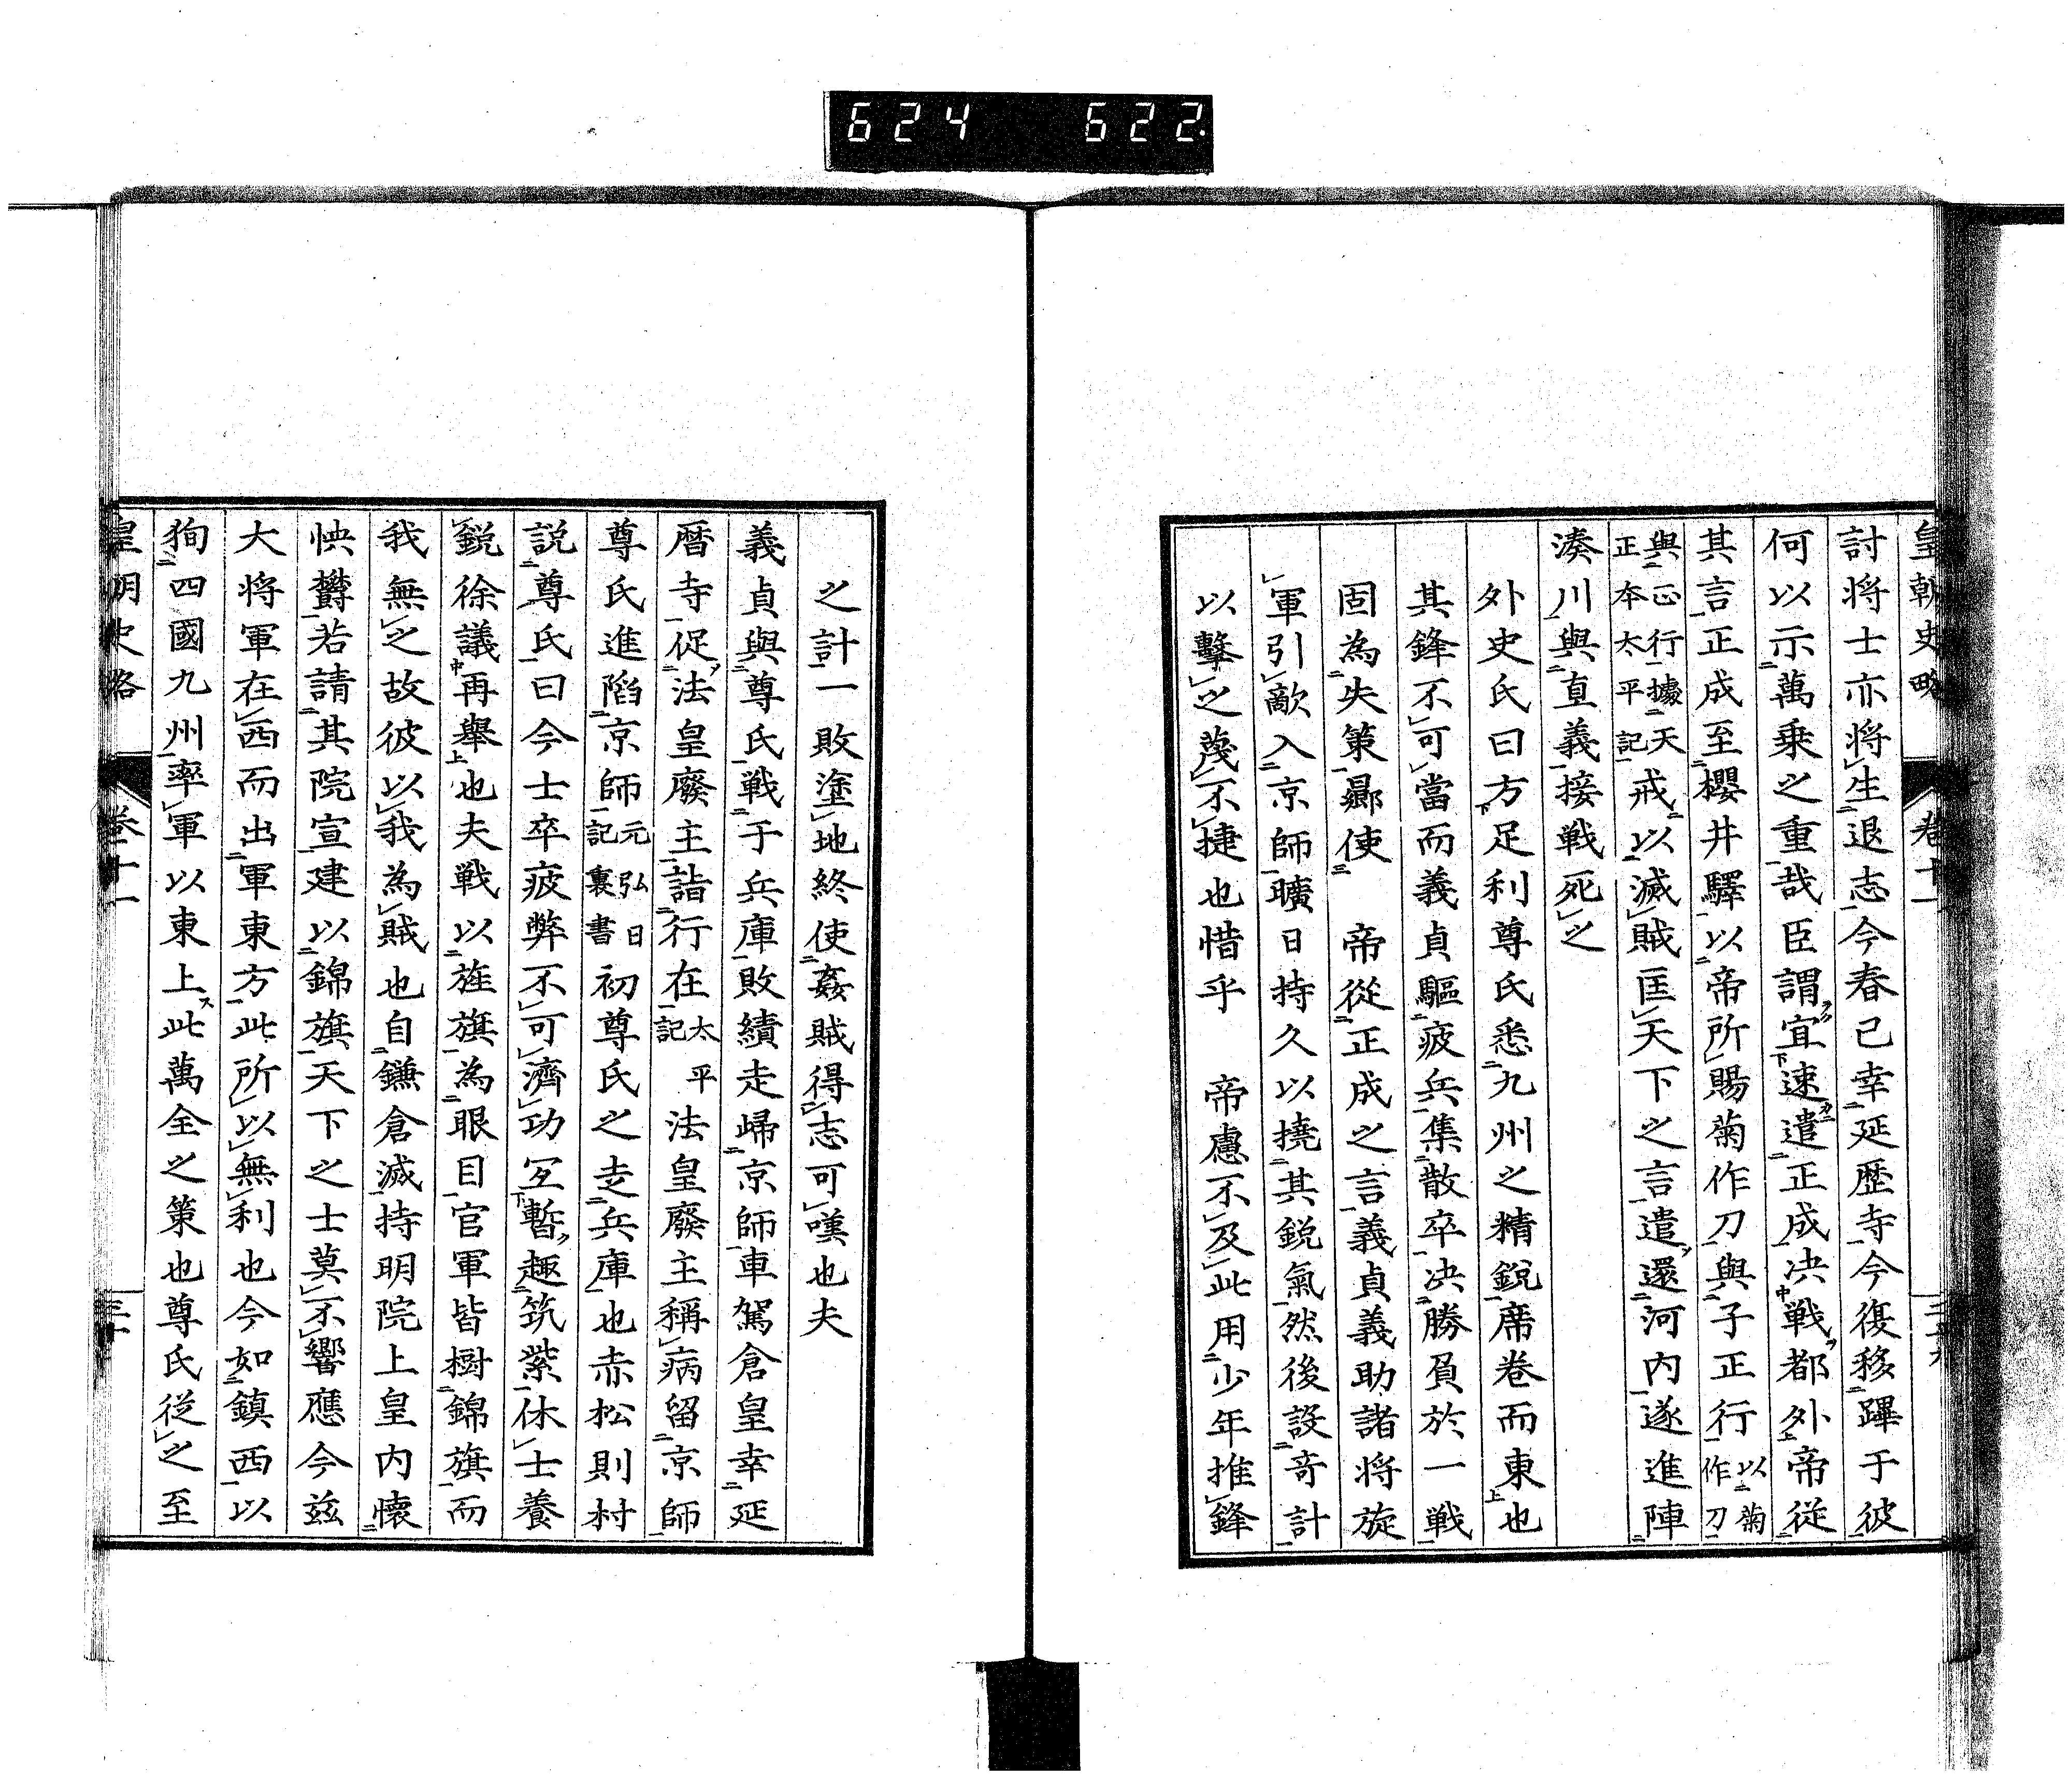 624 622
皇朝史略 卷十一
討將士亦將生退志今春已幸延歷寺今復移蹕于彼
何以示萬乗之重哉臣謂宜速遣正成决戰都外帝從
其言正成至櫻井驛以帝所賜菊作刀與子正行以菊作刀
與正行據天正本太平記戒以滅賊匡天下之言遣還河内遂進陣
湊川與直義接戰死之
外史氏曰方足利尊氏悉九州之精鋭席卷而東也
其鋒不可當而義貞驅疲兵集散卒决勝負於一戰
固為失策曏使 帝從正成之言義貞義助諸將旋
軍引敵入京師曠日持久以撓其鋭氣然後設奇計
以擊之蔑不捷也惜乎 帝慮不及此用少年推鋒
之計一敗塗地終使姦賊得志可嘆也夫
義貞與尊氏戰于兵庫敗績走歸京師車駕倉皇幸延
曆寺促法皇廢主詣行在太平記法皇廢主稱病留京師
尊氏進陷京師元弘日記裏書初尊氏之走兵庫也赤松則村
説尊氏曰今士卒疲弊不可濟功宜暫趣筑紫休士養
鋭徐議再舉也夫戰以旌旗為眼目官軍皆樹錦旗而
我無之故彼以我為賊也自鎌倉滅持明院上皇内懷
怏欝若請其院宣建以錦旗天下之士莫不響應今兹
大將軍在西而出軍東方此所以無利也今如鎮西以
狥四國九州率軍以東上此萬全之策也尊氏従之至
皇朝史略 卷十一 三十